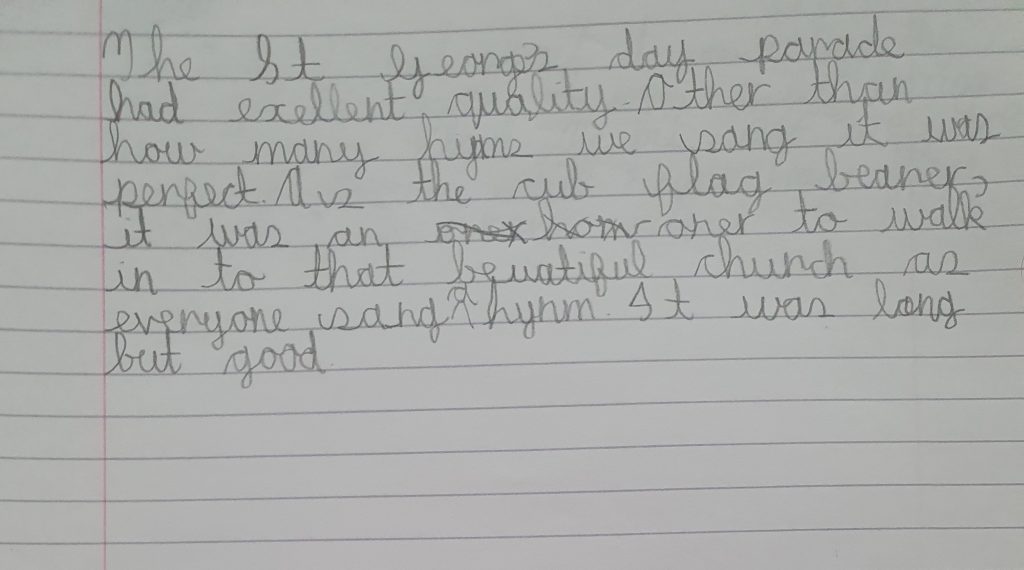 The St Georg's day parade
had exellent quality. Other than
how many hyms we sang it was
perfect. As the cub flag bearer,
it was an honroner to walk
in to that beuatiful church as
everyone sang a hynm. It was long
but good